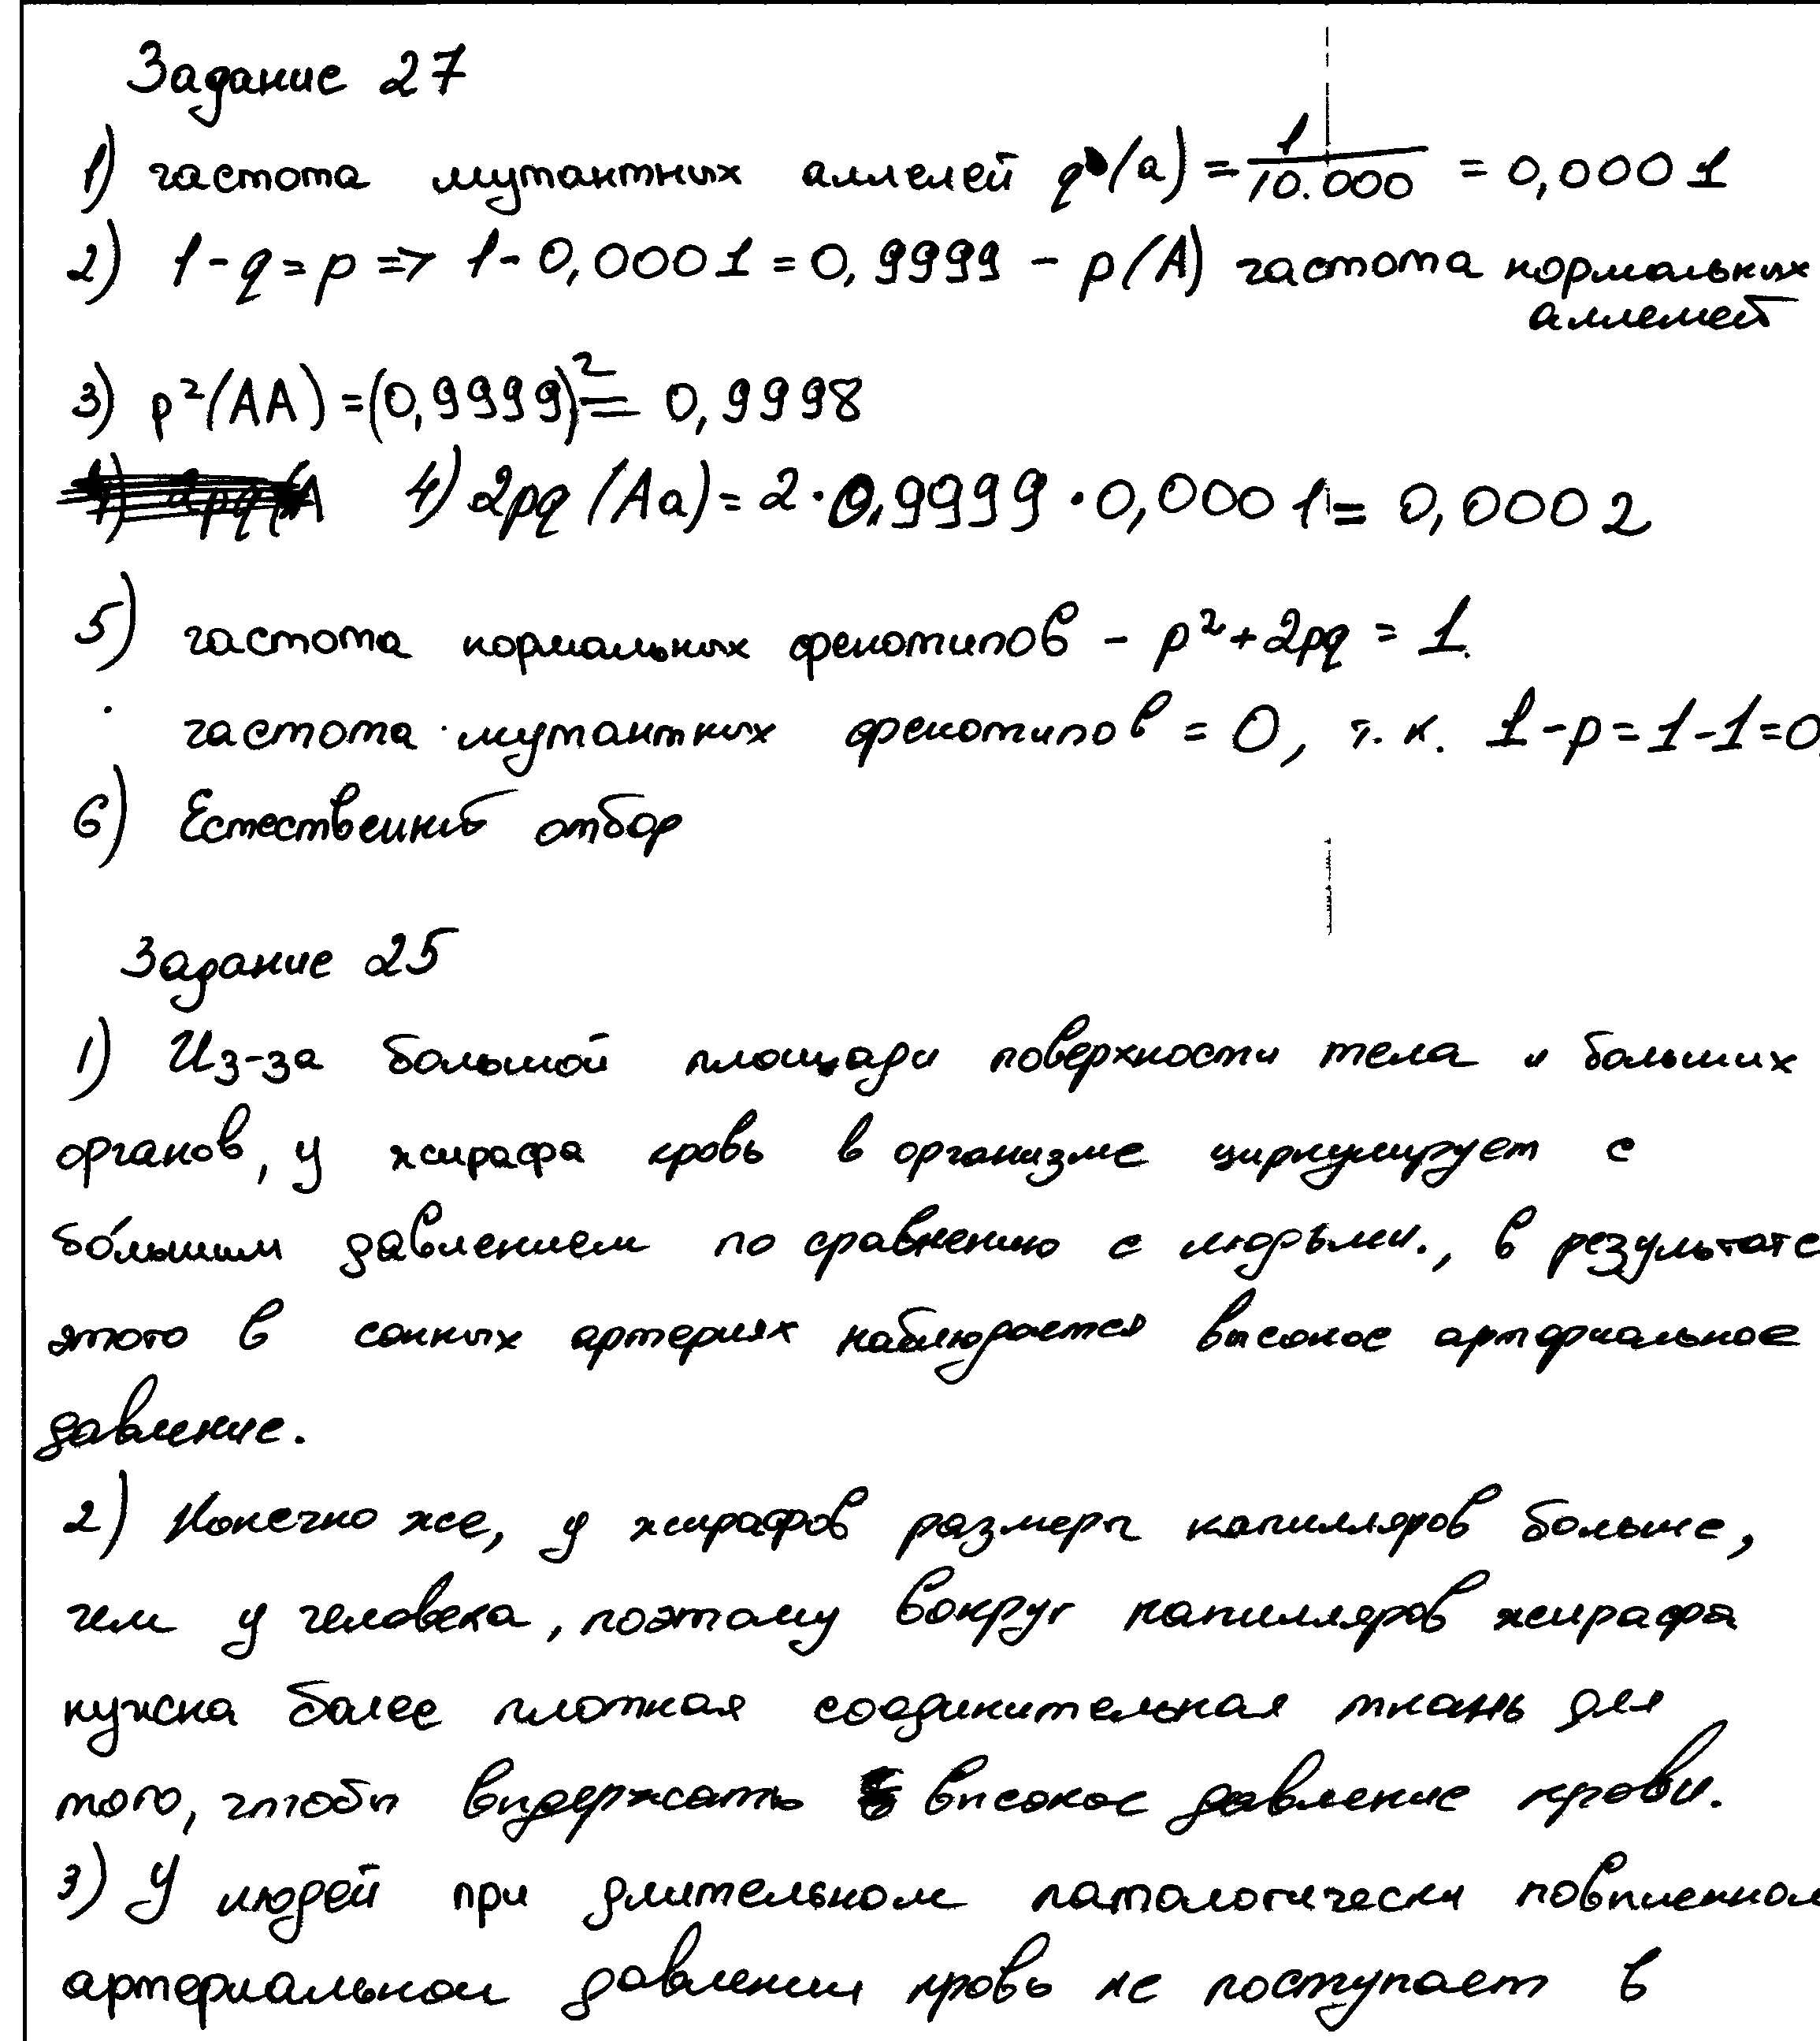 Задание 27
1) частота мутантных аллелей q(a) = 1/10.000 = 0,0001
2) 1-q=p => 1-0,0001=0,9999 - p(A) частота нормальных
аллелей
3) p²(AA) =(0,9999)²= 0,9998
4) 2pq(A 4) 2pq (Aa)= 2·0,9999·0,0001= 0,0002
5) частота нормальных фенотипов - p²+2pq = 1.
частота мутантных фенотипов = 0, т.к. 1-p=1-1=0,
6) Естественный отбор
Задание 25
1) Из-за большой площади поверхности тела и больших
органов, у жирафа кровь в организме циркулирует с
бо́льшим давлением по сравнению с людьми., в результате
этого в сонных артериях наблюдается высокое артериальное
давление.
2) Конечно же, у жирафов размеры капилляров больше,
чем у человека, поэтому вокруг капилляров жирафа
нужна более плотная соединительная ткань для
того, чтобы выдержать высокое давление крови.
3) У людей при длительном паталогически повышенном
артериальном давлении кровь не поступает в